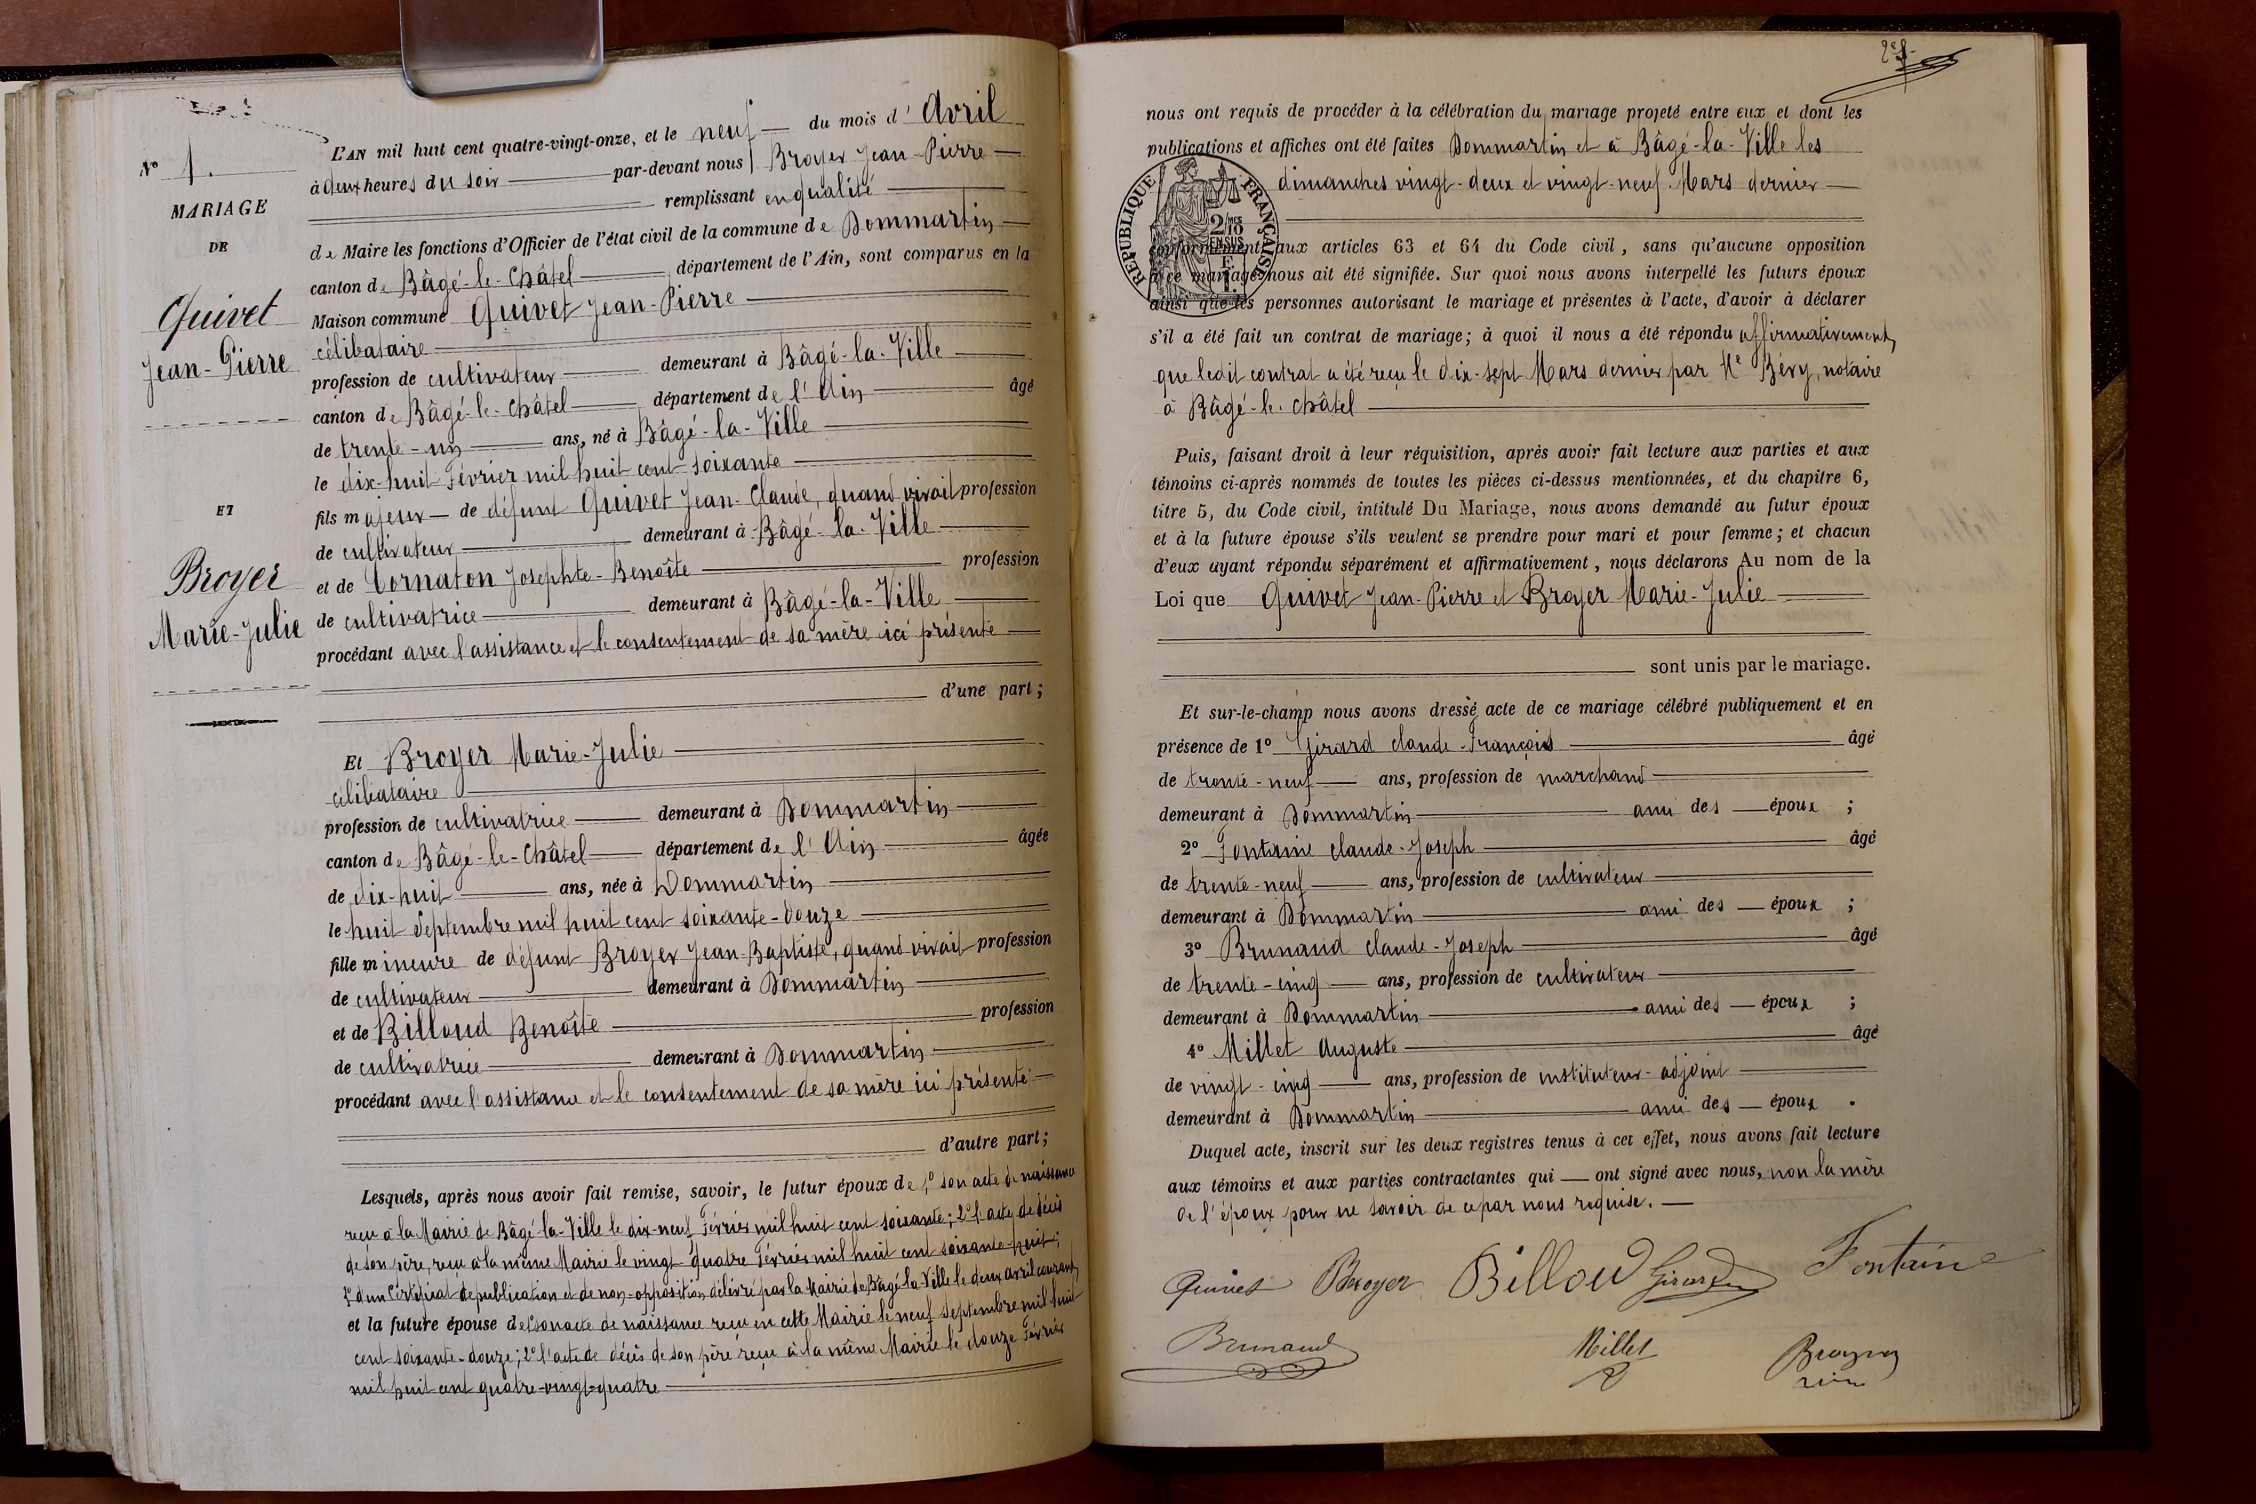 N° 1.
MARIAGE
DE
Quivet
Jean-Pierre
ET
Broyer
Marie-Julie
L'AN mil huit cent quatre-vingt-onze, et le neuf du mois d'Avril
à deux heures du soir par-devant nous Broyer Jean-Pierre
remplissant en qualité
de Maire les fonctions d'Officier de l'état civil de la commune de Dommartin
canton de Bâgé-le-Châtel département de l'Ain, sont comparus en la
Maison commune Quivet Jean-Pierre
célibataire
profession de cultivateur demeurant à Bâgé-la-Ville
canton de Bâgé-le-Châtel département de l'Ain âgé
de trente-un ans, né à Bâgé-la-Ville
le dix-huit Février mil huit cent soixante
fils majeur de défunt Quivet Jean-Claude, quand vivait profession
de cultivateur demeurant à Bâgé-la-Ville
et de Cornaton Josephte-Benoîte profession
de cultivatrice demeurant à Bâgé-la-Ville
procédant avec l'assistance et le consentement de sa mère ici présente
d'une part;
Et Broyer Marie-Julie
célibataire
profession de cultivatrice demeurant à Dommartin
canton de Bâgé-le-Châtel département de l'Ain âgée
de dix-huit ans, née à Dommartin
le huit Septembre mil huit cent soixante-douze
fille mineure de défunt Broyer Jean-Baptiste, quand vivait profession
de cultivateur demeurant à Dommartin
et de Billoud Benoîte profession
de cultivatrice demeurant à Dommartin
procédant avec l'assistance et le consentement de sa mère ici présente
d'autre part;
Lesquels, après nous avoir fait remise, savoir, le futur époux de 1° son acte de naissance
reçu à la Mairie de Bâgé-la-Ville le dix-neuf Février mil huit cent soixante; 2° l'acte de décès
de son père, reçu à la même Mairie le vingt-quatre Février mil huit cent soixante-huit;
3° d'un Certificat de publication et de non-opposition délivré par la Mairie de Bâgé-la-Ville le deux avril courant,
et la future épouse de 1° son acte de naissance reçu en cette Mairie le neuf Septembre mil huit
cent soixante-douze; 2° l'acte de décès de son père reçu à la même Mairie le douze Février
mil huit cent quatre-vingt-quatre
nous ont requis de procéder à la célébration du mariage projeté entre eux et dont les
publications et affiches ont été faites Dommartin et à Bâgé-la-Ville les
dimanches vingt-deux et vingt-neuf Mars dernier
RÉPUBLIQUE FRANÇAISE
2/10 MES
EN SUS
conformément aux articles 63 et 64 du Code civil, sans qu'aucune opposition
à ce mariage nous ait été signifiée. Sur quoi nous avons interpellé les futurs époux
ainsi que les personnes autorisant le mariage et présentes à l'acte, d'avoir à déclarer
s'il a été fait un contrat de mariage; à quoi il nous a été répondu affirmativement,
que ledit contrat a été reçu le dix-sept Mars dernier par Me Béry, notaire
à Bâgé-le-Châtel
Puis, faisant droit à leur réquisition, après avoir fait lecture aux parties et aux
témoins ci-après nommés de toutes les pièces ci-dessus mentionnées, et du chapitre 6,
titre 5, du Code civil, intitulé Du Mariage, nous avons demandé au futur époux
et à la future épouse s'ils veulent se prendre pour mari et pour femme; et chacun
d'eux ayant répondu séparément et affirmativement, nous déclarons Au nom de la
Loi que Quivet Jean-Pierre et Broyer Marie-Julie
sont unis par le mariage.
Et sur-le-champ nous avons dressé acte de ce mariage célébré publiquement et en
présence de 1° Girard Claude-François âgé
de trente-neuf ans, profession de marchand
demeurant à Dommartin ami des époux;
2° Fontaine Claude-Joseph âgé
de trente-neuf ans, profession de cultivateur
demeurant à Dommartin ami des époux;
3° Brunaud Claude-Joseph âgé
de trente-cinq ans, profession de cultivateur
demeurant à Dommartin ami des époux;
4° Millet Auguste âgé
de vingt-cinq ans, profession de instituteur-adjoint
demeurant à Dommartin ami des époux.
Duquel acte, inscrit sur les deux registres tenus à cet effet, nous avons fait lecture
aux témoins et aux parties contractantes qui ont signé avec nous, non la mère
de l'époux pour ne savoir de ce par nous requise.
Quivet Broyer Billoud Girard Fontaine
Brunaud Millet Broyer